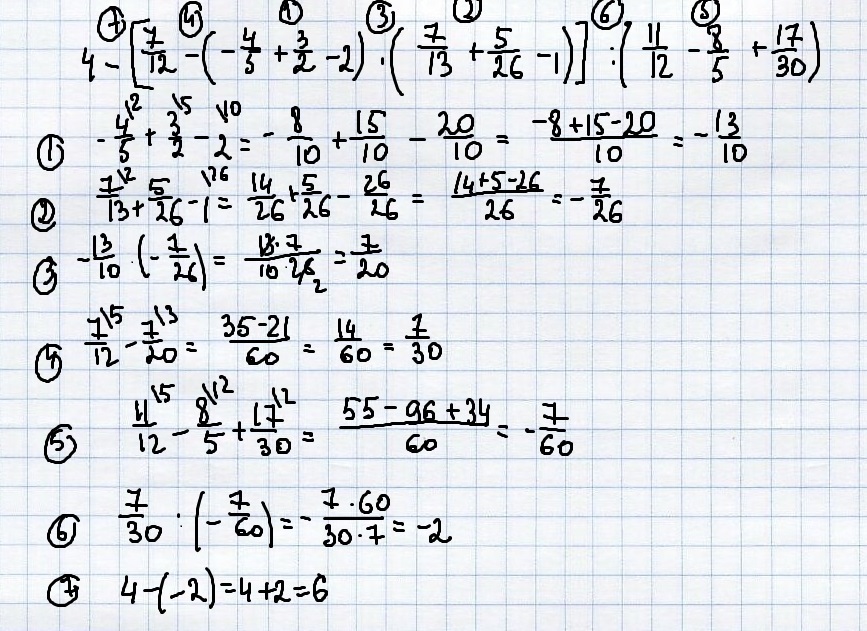 ⑦ ④ ① ③ ② ⑥ ⑤
4 - [7/12 - (-4/5 + 3/2 - 2) · (7/13 + 5/26 - 1)] : (11/12 - 8/5 + 17/30)
① -4/5\2 + 3/2\5 - 2\10 = -8/10 + 15/10 - 20/10 = (-8+15-20)/10 = -13/10
② 7/13\2 + 5/26 - 1\26 = 14/26 + 5/26 - 26/26 = (14+5-26)/26 = -7/26
③ -13/10 · (-7/26) = (13·7)/(10·26 2) = 7/20
④ 7/12\5 - 7/20\3 = (35-21)/60 = 14/60 = 7/30
⑤ 11/12\5 - 8/5\12 + 17/30\2 = (55-96+34)/60 = -7/60
⑥ 7/30 : (-7/60) = -(7·60)/(30·7) = -2
⑦ 4-(-2)=4+2=6